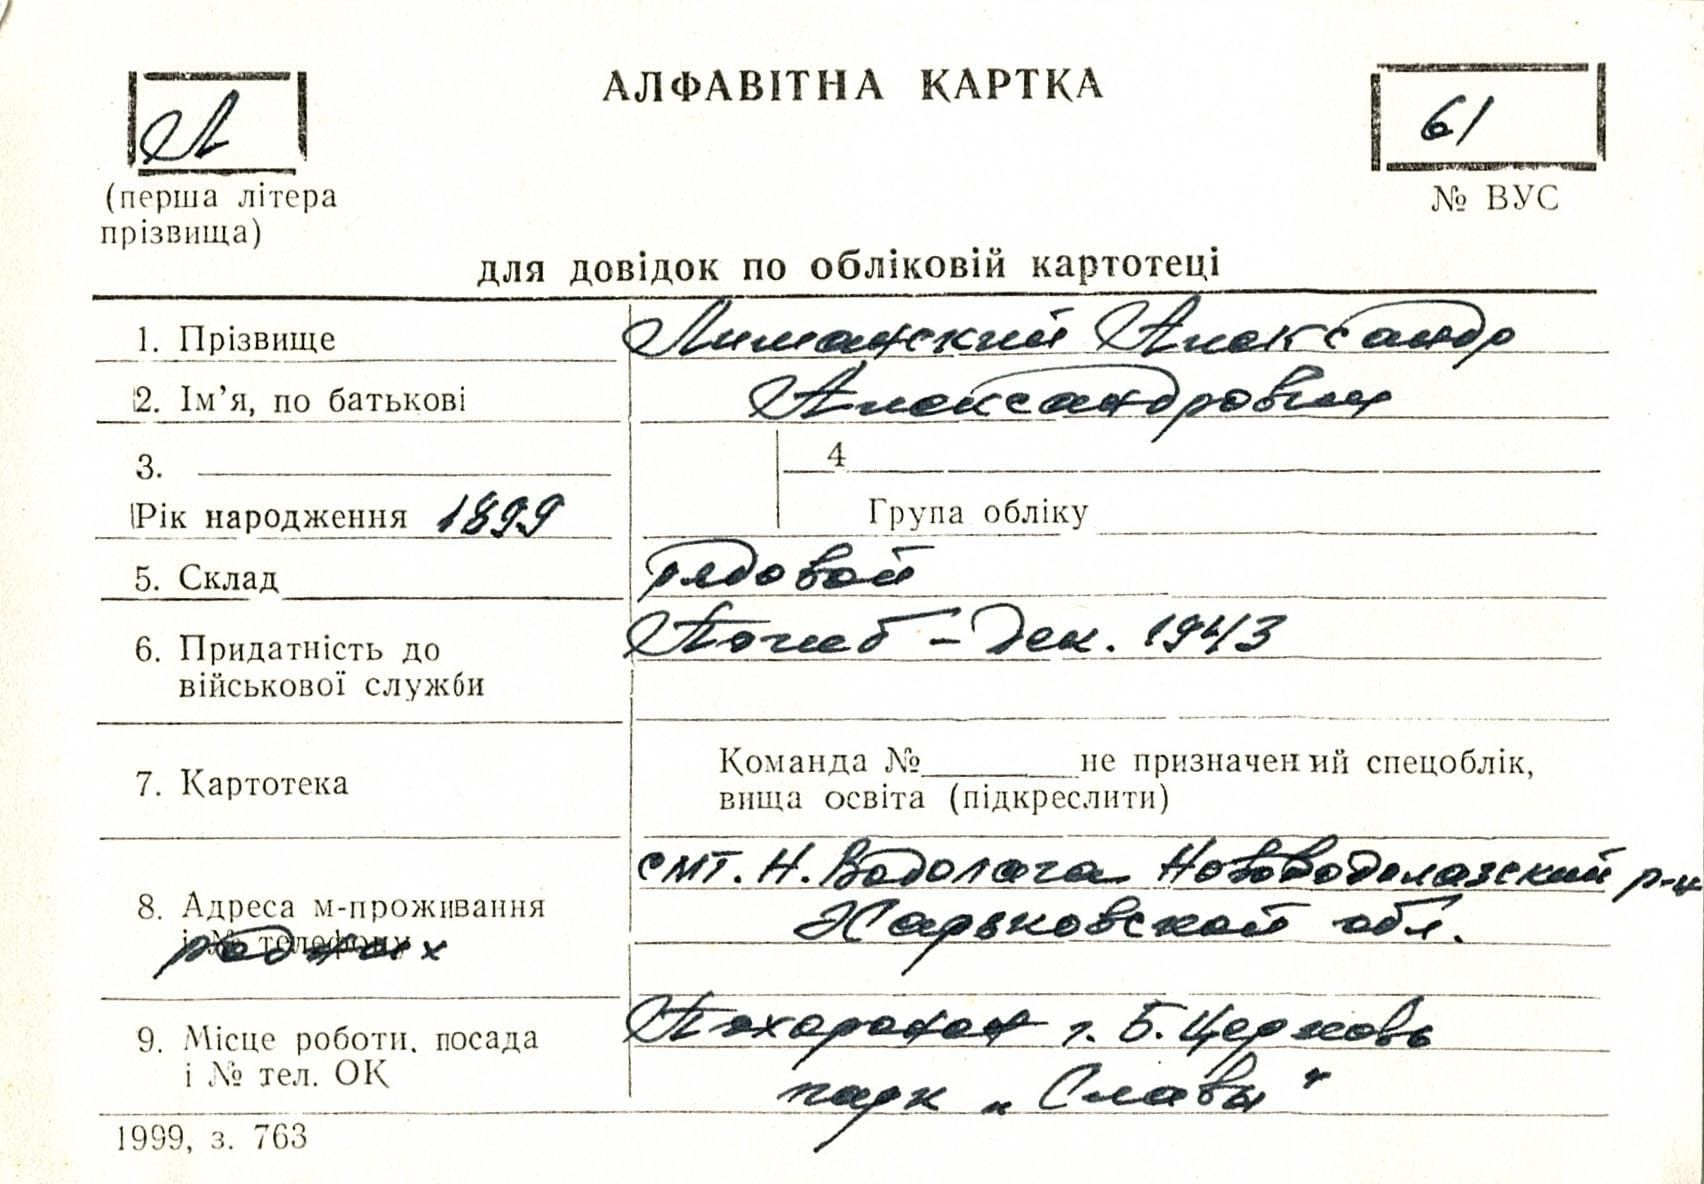 АЛФАВІТНА КАРТКА
Л
61
(перша літера
прізвища)
№ ВУС
для довідок по обліковій картотеці
1. Прізвище Лиманский Александр
2. Ім’я, по батькові Александрович
3. 4
Рік народження 1899 Група обліку
5. Склад рядовой
6. Придатність до Погиб – дек. 1943
військової служби
7. Картотека
Команда №______не призначений спецоблік,
вища освіта (підкреслити)
смт. Н. Водолага Нововодолазский р-н
8. Адреса м-проживання Харьковской обл.
і № телефону родных
9. Місце роботи, посада Похоронен г. Б. Церковь
і № тел. ОК парк „Славы“
1999, з. 763